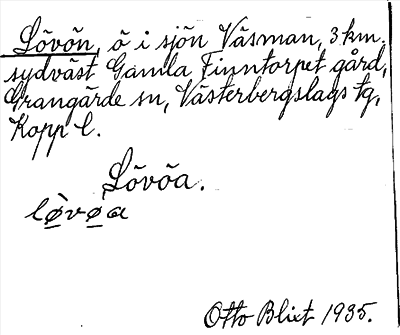 Lövön, ö i sjön Väsman, 3 km.
sydväst Gamla Finntorpet gård,
Grangärde sn, Västerbergslags tg,
Kopp l.
Lövöa.
lø̀vø̀a
Otto Blixt 1935.